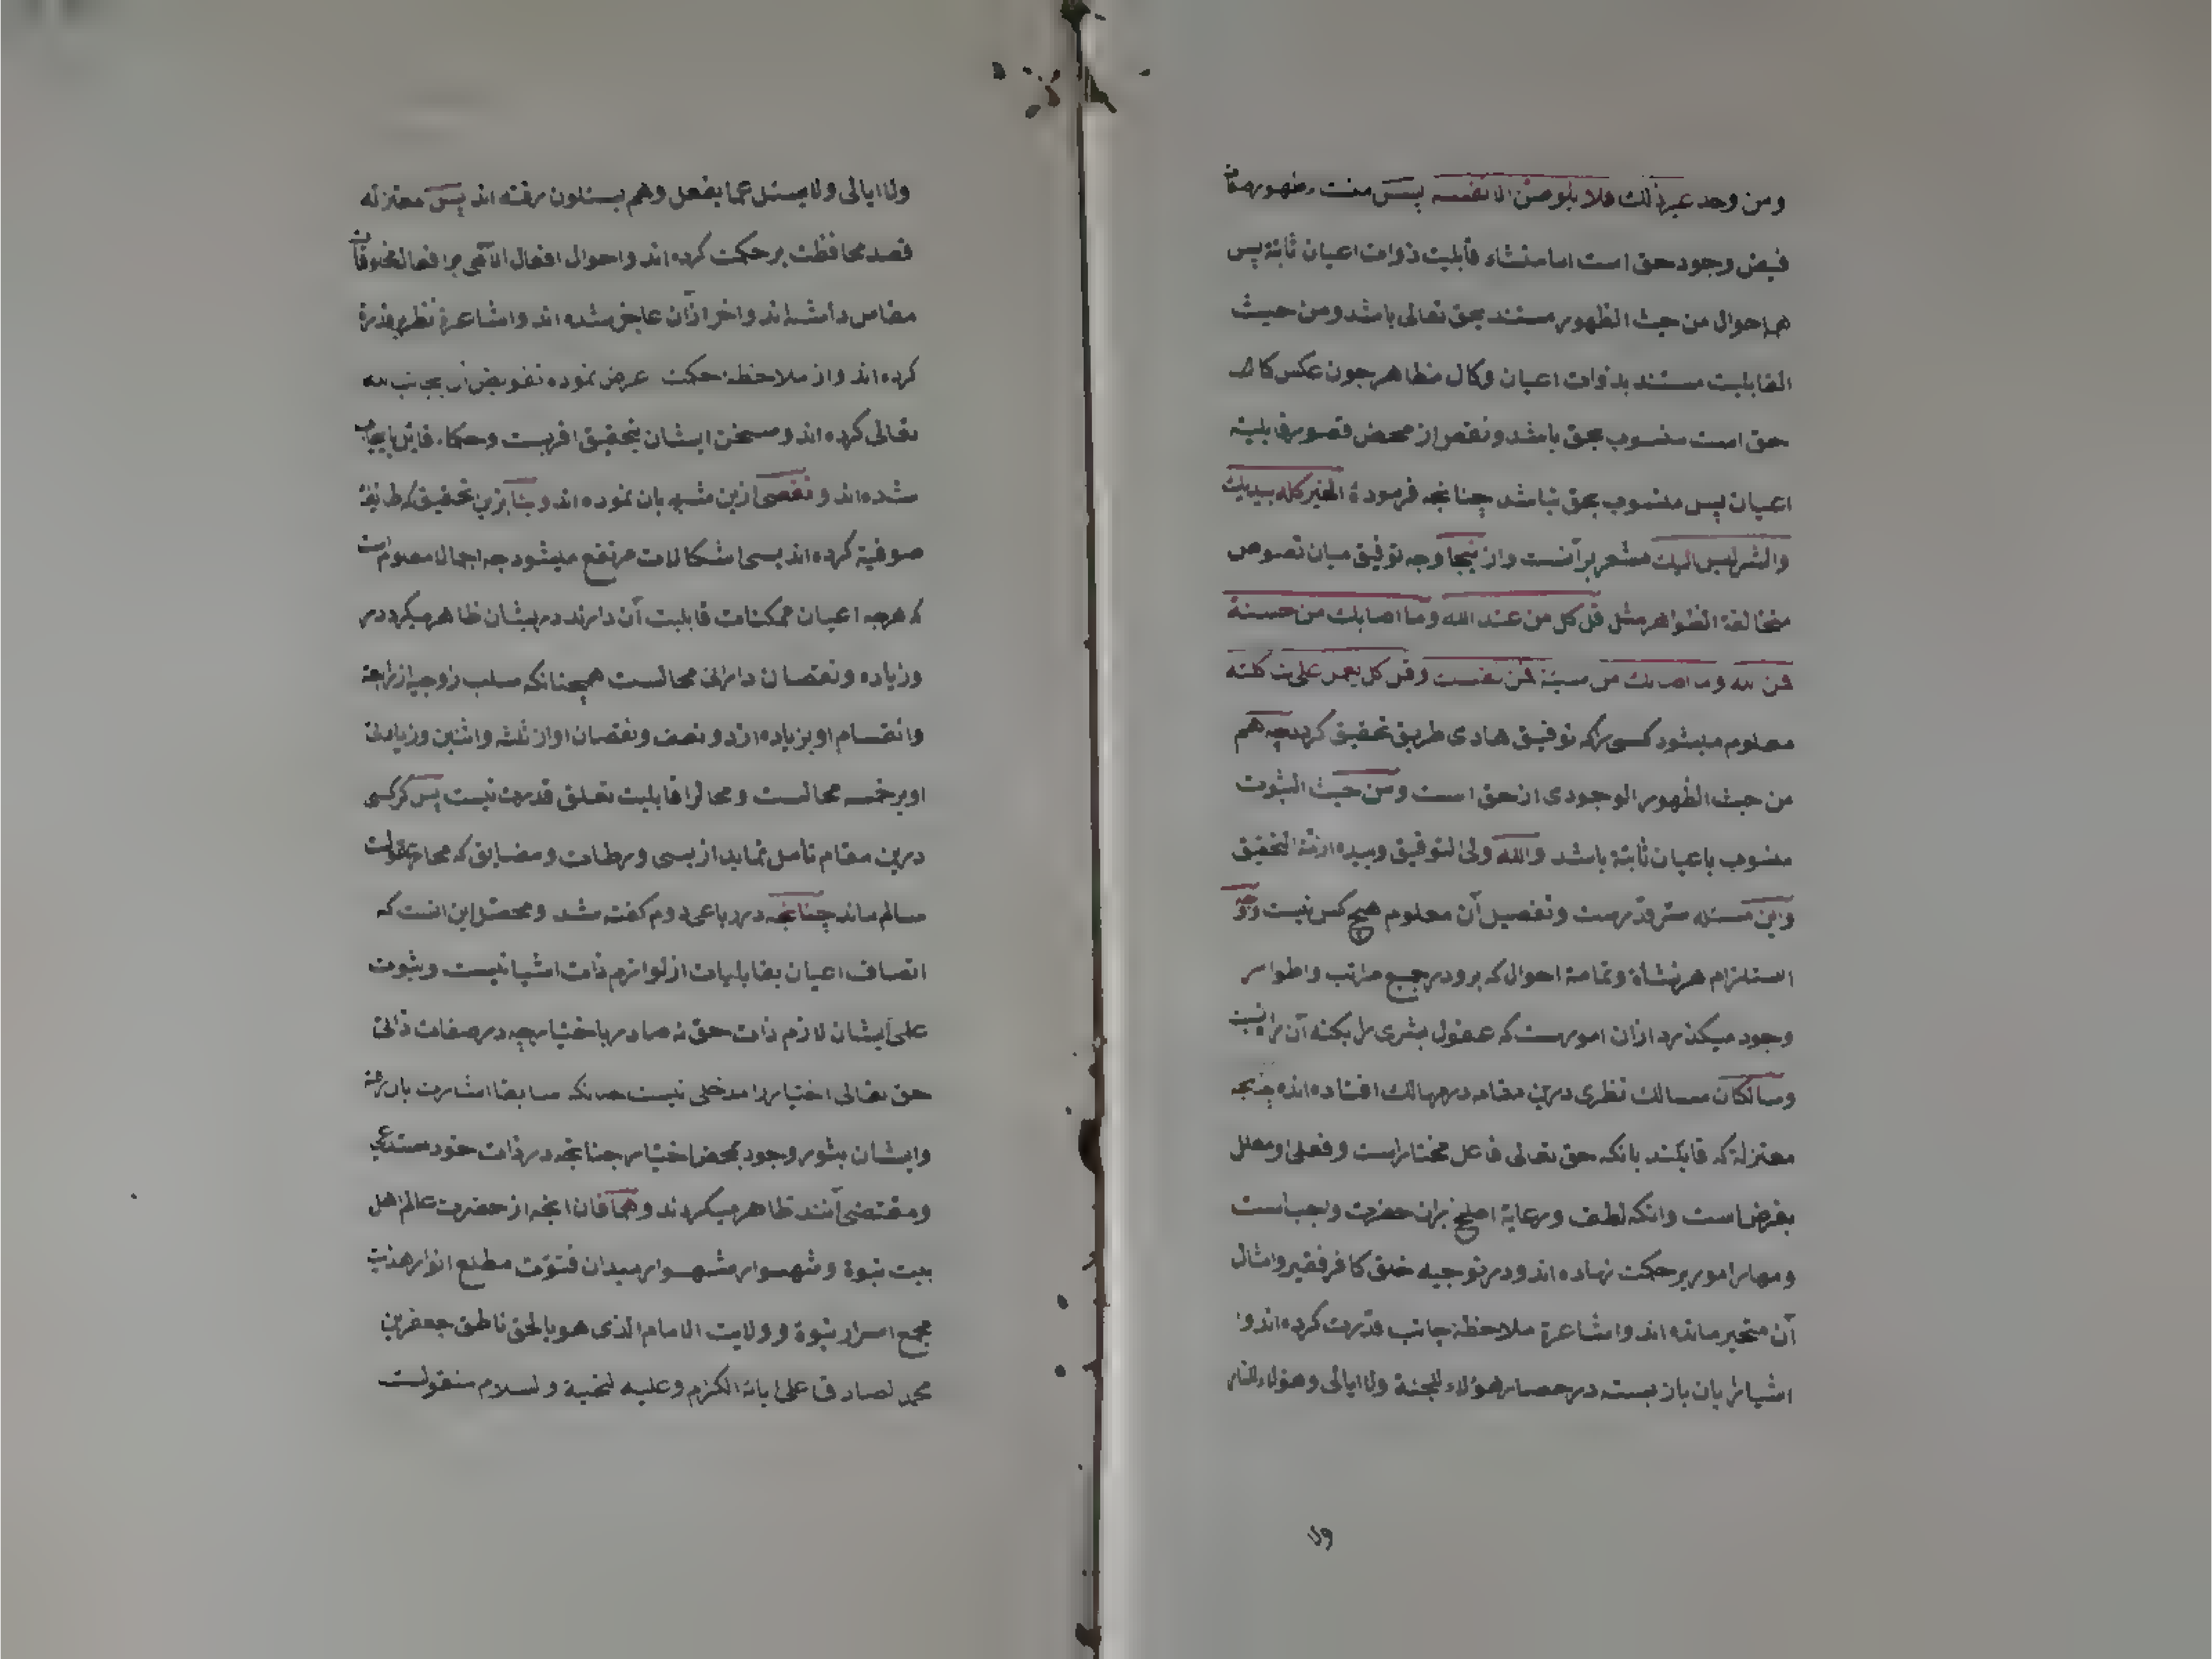 ومن وجد غير ذلك فلا يلومن الا نفسه پس منشاء ظهور
فيض وجود حق است اما منشاء قابليت ذوات اعيان ثابتة پس
همه احوال من حيث الظهور مستند بحق تعالى باشد ومن حيث
القابليت مستند بذوات اعيان وكال مظاهر چون عكس كمال
حق است منسوب بحق باشد ونقص از محض قصور قابلية
اعيان پس منسوب بحق نباشد چنانچه فرمودهٔ الخير كله بيديك
والشر ليس اليك مشعر برآنست وازينجا وجه توفيق ميان نصوص
متخالفة الظواهر مثل قل كل من عند الله وما اصابك من حسنة
فمن الله وما اصابك من سيئة فمن نفسك وقل كل يعمل على شاكلته
معلوم ميشود كسى را كه توفيق هادى طريق تحقيق كردد چه هم
من حيث الظهور الوجودى از حق است ومن حيث الثبوت
منسوب باعيان ثابتة باشد والله ولى التوفيق وبيده ازمة التحقيق
واين مسئله سر قدرست وتفصيل آن معلوم هيچ كس نيست
استلزام هر نشاة وتمامة احوال كه برو در جميع مراتب واطوار
وجود ميكذرد ازان امورست كه عقول بشرى را بكنه آن راه نيست
وسالكان مسالك نظرى درين مقام در مهالك افتاده اند چنانچه
معتزله كه قايلند بانكه حق تعالى فاعل مختارست وفعل او معلل
بغرض است وانكه لطف ورعاية اصلح بران حضرت واجب است
ومهار امور بر حكمت نهاده اند ودر توجيه خلق كافر فقير وامثال
آن متحير مانده اند واشاعرة ملاحظة جانب قدرت كرده اند و
اشيا را بان باز بسته در حصار هؤلاء للجنة ولا ابالى وهؤلاء للنار
ولا
ولا ابالى ولا يسئل عما يفعل وهم يسئلون رفته اند پس معتزله
قصد محافظت بر حكمت كرده اند واحوال افعال الآهى بر افعال مخلوقات
مقاس داشته اند واخر ازان عاجز شده اند واشاعرة نظر بر قدرة
كرده اند واز ملاحظهٔ حكمت عرض نموده تفويض آن بجانب الله
تعالى كرده اند وسخن ايشان بتحقيق اقربست وحكماء قايل بايجاب
شده اند وتفصى ازين شبه بان نموده اند وبنا برين تحقيق كه طايفهٔ
صوفية كرده اند بسى اشكالات مرتفع ميشود چه اجمالا معلوم است
كه هرچه اعيان ممكنات قابليت آن دارند در ايشان ظاهر ميكردد
وزياده ونقصان دران محالست همچنانكه سلب زوجية از اربعة
وانقسام او بزياده از دو نصف ونقصان او از ثلثه واثنين وزيادتى
او بر خمسه محالست ومحال را قابليت تعلق قدرت نيست پس كر كسى
درين مقام تامل نمايد از بسى ورطات ومضايق كه محار عقولست
سالم ماند چنانچه در رباعى دوم كفته شد ومحصل اين انست كه
اتصاف اعيان بقابليات از لوازم ذات اشيا نيست وثبوت
على ايشان لازم ذات حق نه صادر باختيار چه در صفات ذاتى
حق تعالى اختيار را مدخلى نيست چنانكه سابقا اشارت بان رفت
وايشان بنور وجود بمحض اختيار چنانچه در ذات خود مستدعى
ومقتضى آنند ظاهر ميكردند وهمافان انچه از حضرت عالم اهل
بيت نبوة وشهسوار مشهور ميدان فتوّت مطلع انوار هدايت
مجمع اسرار نبوة وولايت الامام الذى هو بالحق ناطق جعفر بن
محمد الصادق على ابائه الكرام وعليه التحية والسلام منقولست